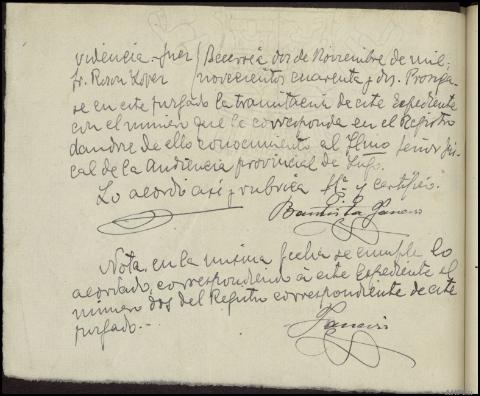 videncia - Juez / Becerreá dos de Noviembre de mil
Sr. Roson Lopez / novecientos cuarenta y dos. Prosiga-
se en este juzgado la tramitacia de este Expediente
con el numero que le corresponda en el Registro
dandose de ello conocimiento al Ilmo señor Fis-
cal de la Audiencia provincial de Lugo.
Lo acordó así y rubrica Sª y certifico.
Bautista
Nota, en la misma fecha se cumple lo
acordado, correspondiendo á este Expediente el
numero dos del Registro correspondiente de este
juzgado.-